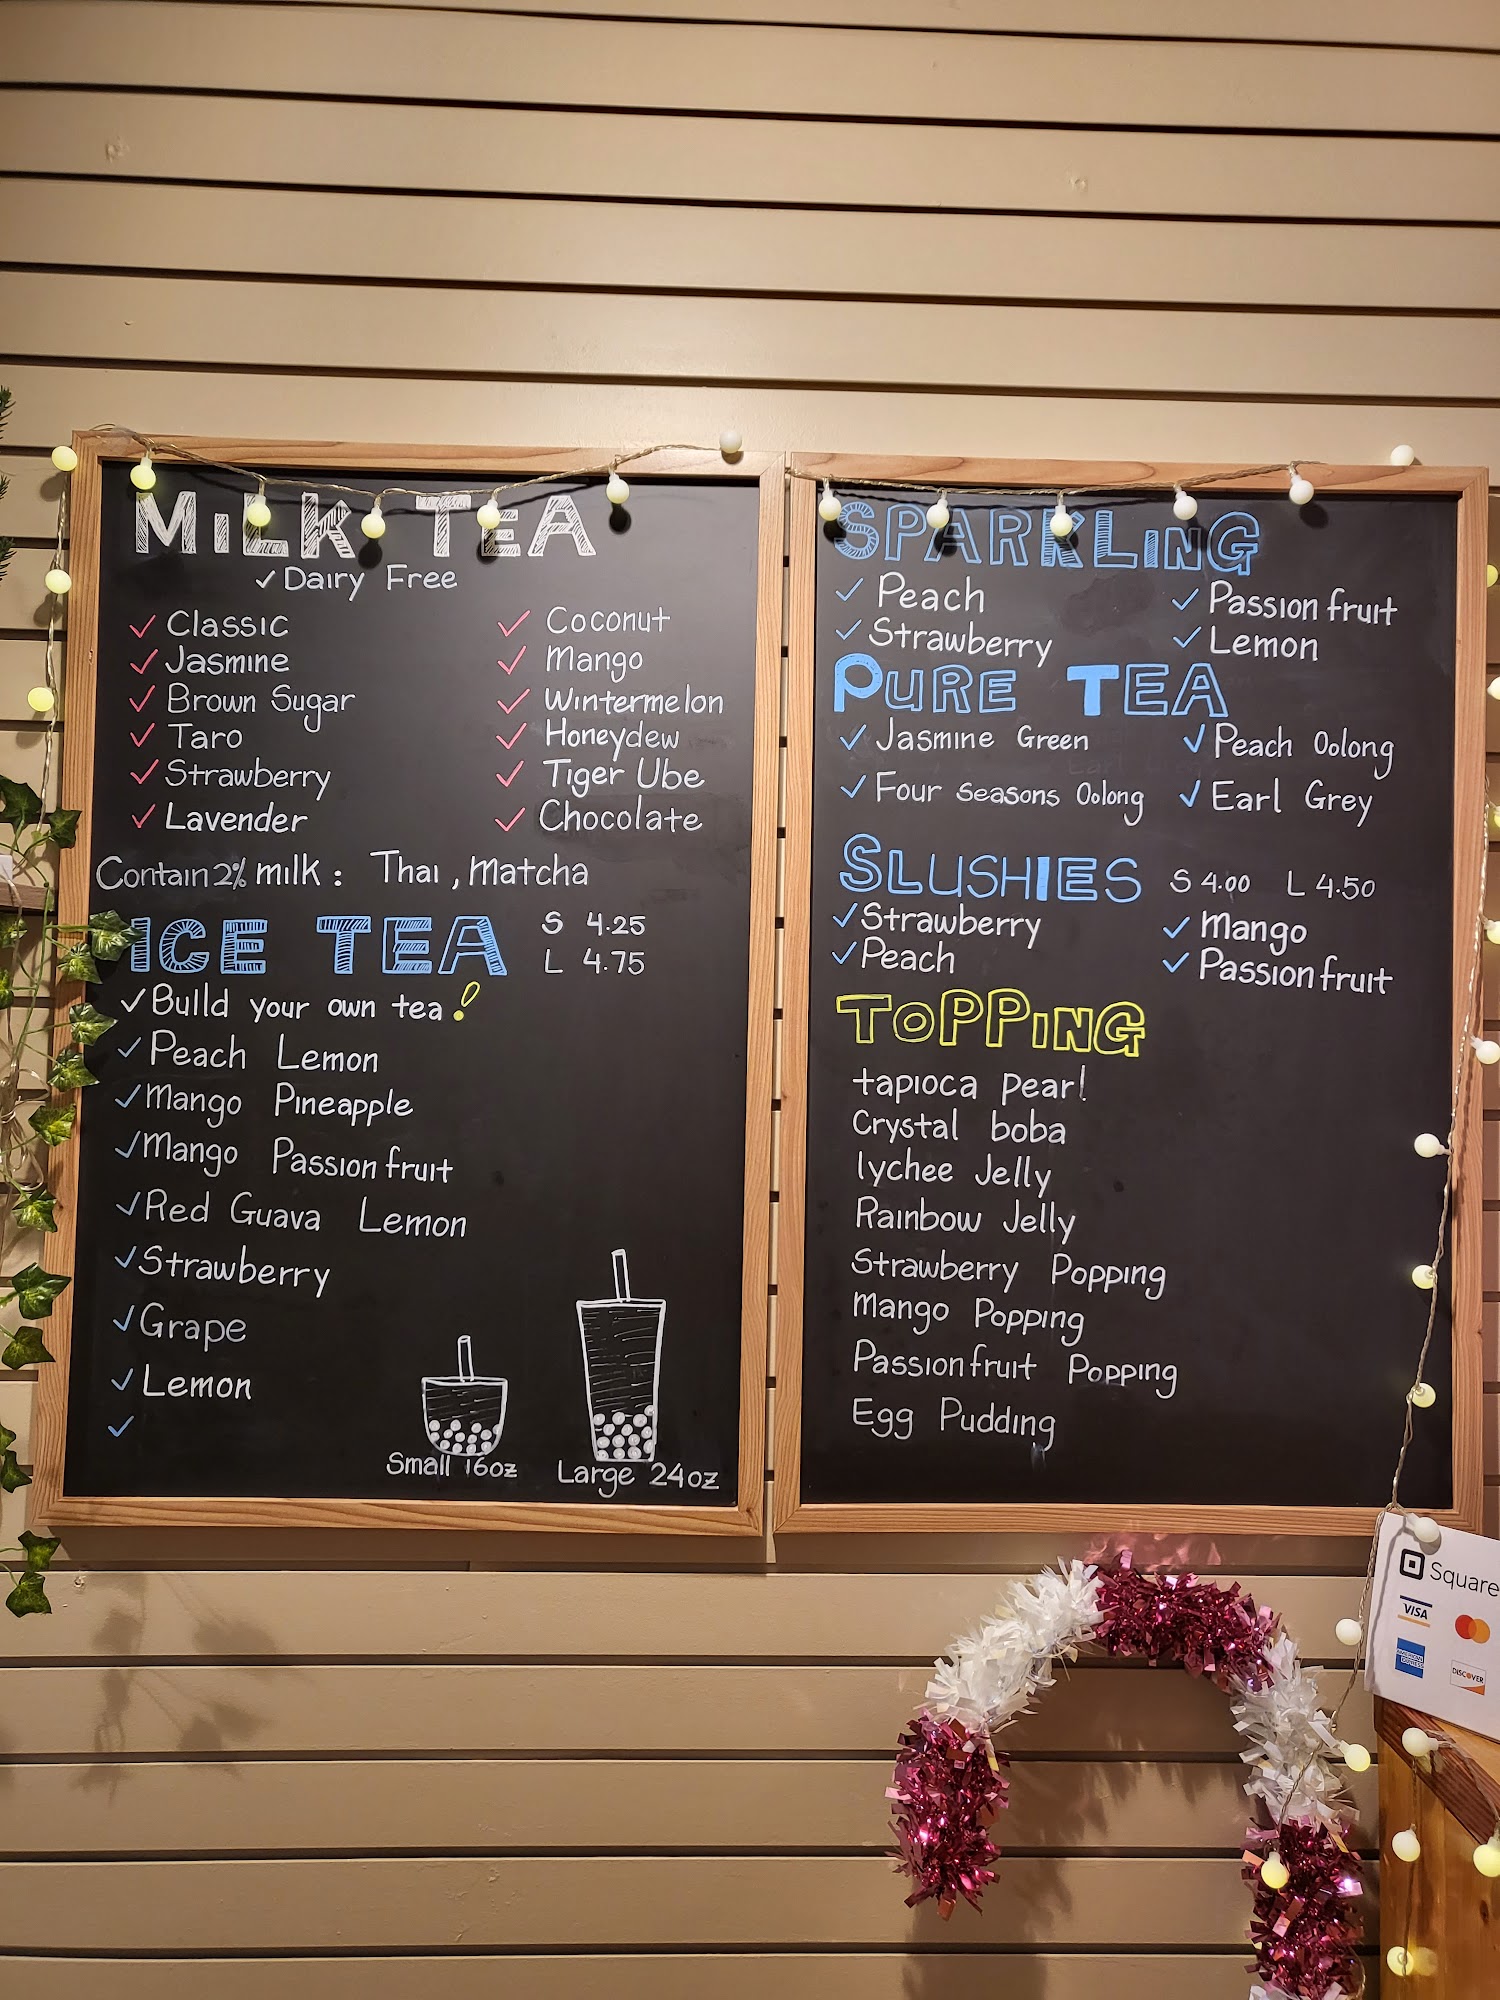 MILK TEA
✓Dairy Free
✓ Classic
✓ Jasmine
✓ Brown Sugar
✓ Taro
✓ Strawberry
✓ Lavender
✓ Coconut
✓ Mango
✓ Wintermelon
✓ Honeydew
✓ Tiger Ube
✓ Chocolate
Contain 2% milk : Thai , Matcha
ICE TEA
S 4.25
L 4.75
✓Build your own tea!
✓ Peach Lemon
✓Mango Pineapple
✓Mango Passion fruit
✓Red Guava Lemon
✓Strawberry
✓Grape
✓Lemon
✓
Small 16oz
Large 24oz
SPARKLING
✓ Peach
✓ Strawberry
✓ Passion fruit
✓ Lemon
PURE TEA
✓ Jasmine Green
✓ Four Seasons Oolong
✓ Peach Oolong
✓ Earl Grey
SLUSHIES S 4.00 L 4.50
✓Strawberry
✓Peach
✓ Mango
✓ Passion fruit
TOPPING
tapioca pearl
Crystal boba
lychee Jelly
Rainbow Jelly
Strawberry Popping
Mango Popping
Passion fruit Popping
Egg Pudding
Square
VISA
AMERICAN EXPRESS
DISCOVER